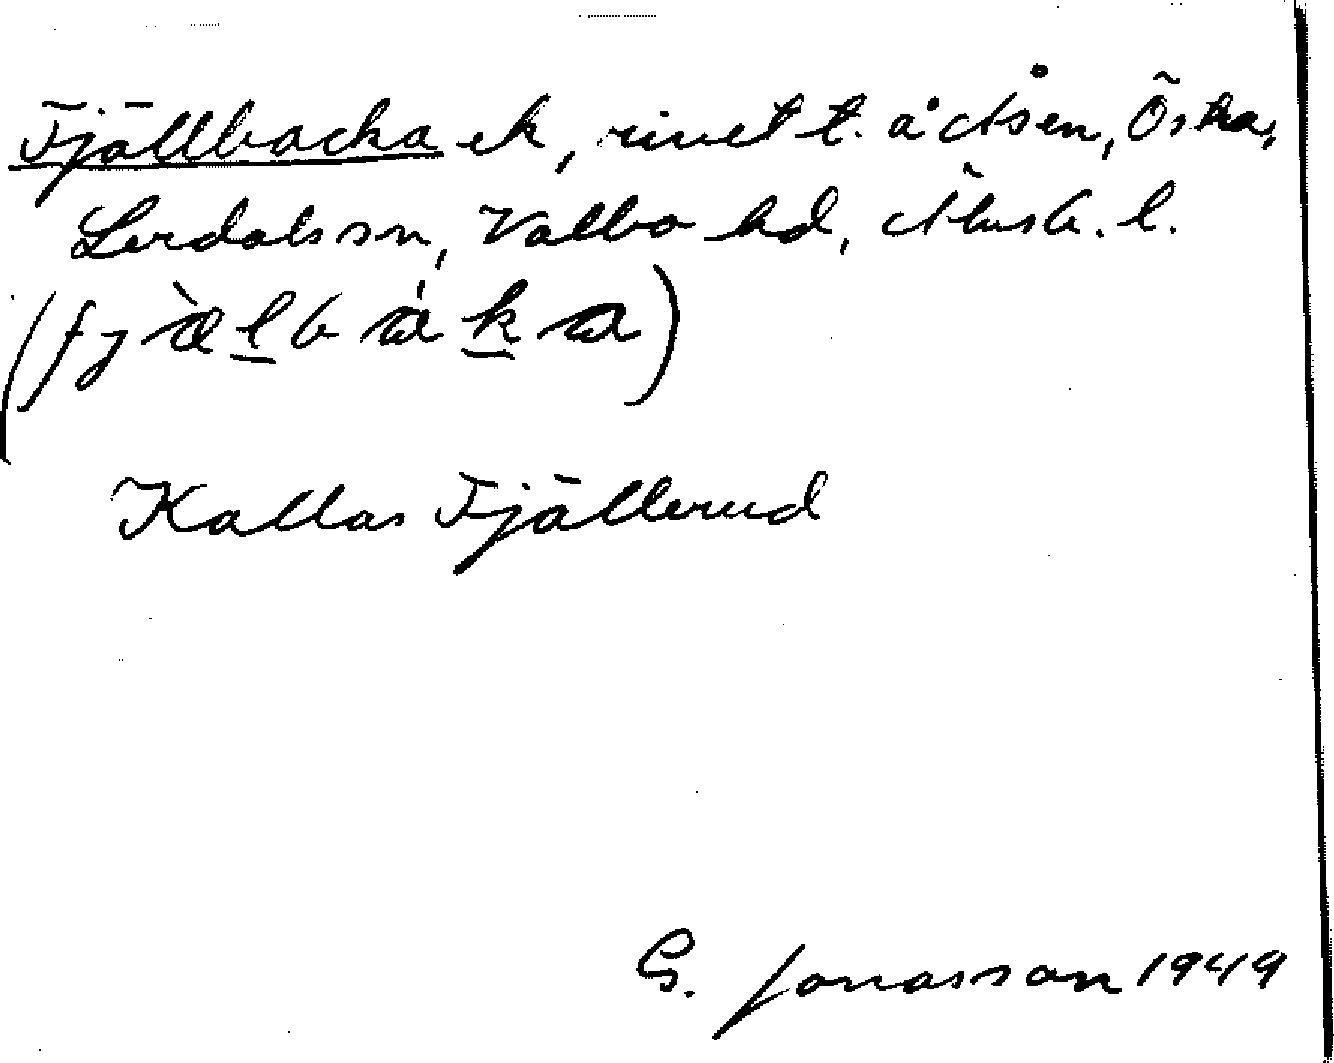 Fjällbacka ek, rivet t. å Åsen, Östra,
Lerdals sn, Valbo hd, Älvsb. l.
(fjæ̀lbákа)
Kallas Fjällerud
G. Jonasson 1949